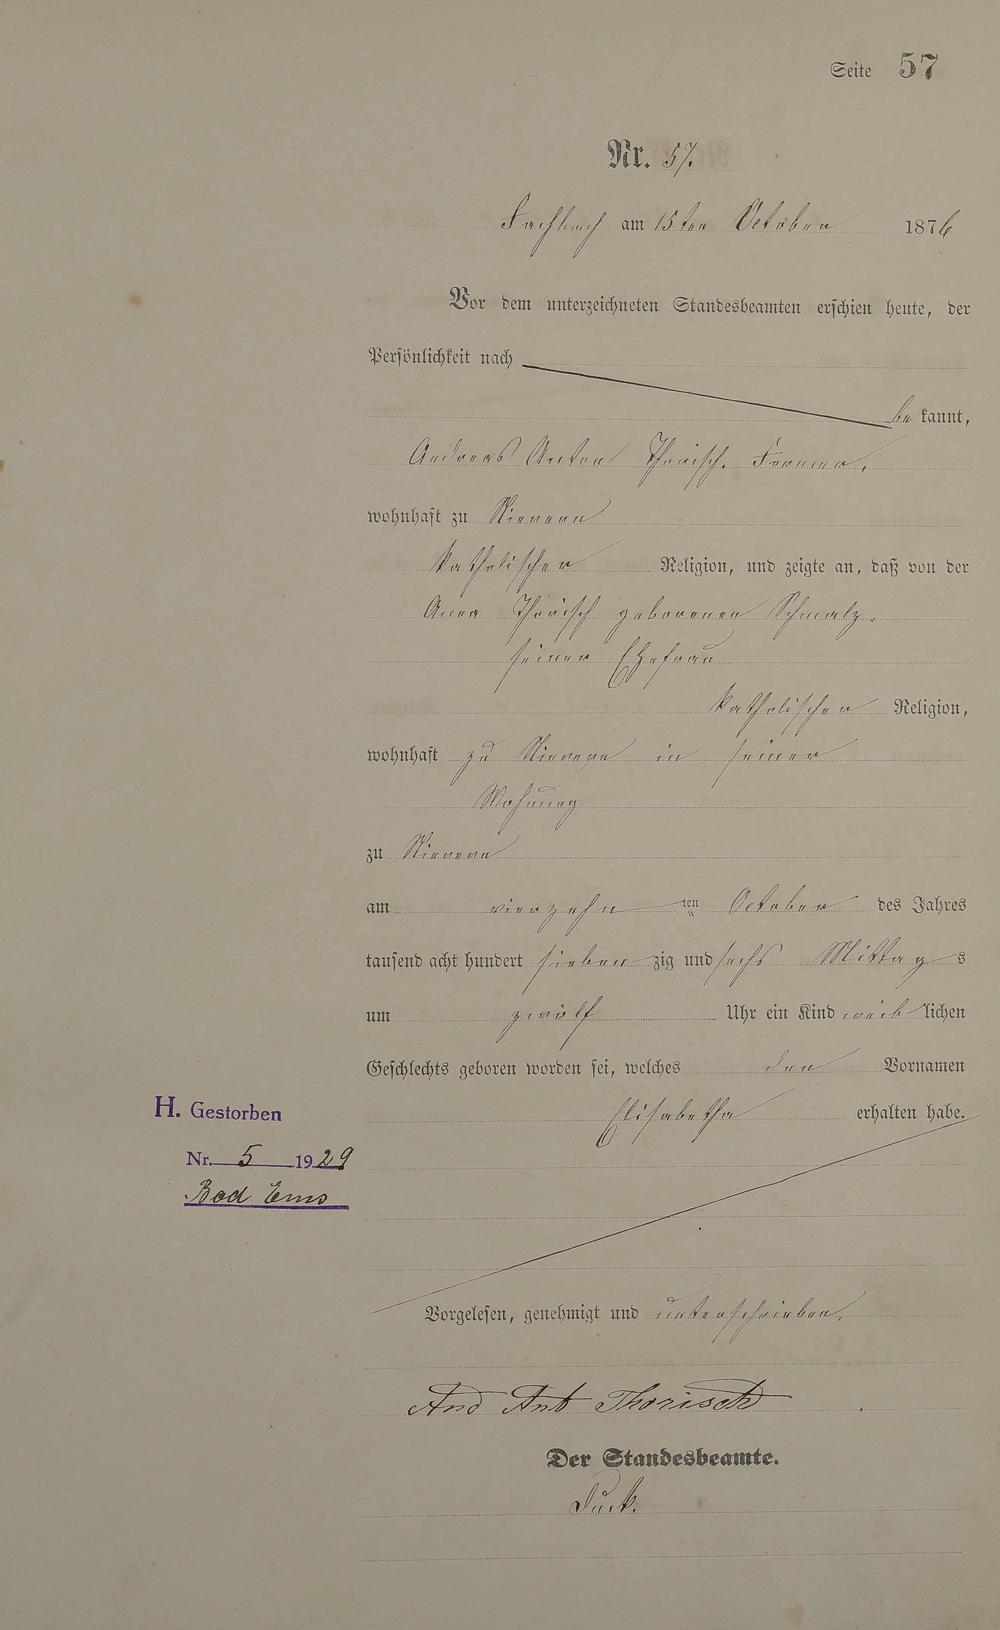 Seite 57
Nr. 57.
Fachbach am 15ten October 1876
Vor dem unterzeichneten Standesbeamten erschien heute, der
Persönlichkeit nach
bekannt,
Andreas Anton Thorisch. Former,
wohnhaft zu Nievern
katholischer Religion, und zeigte an, daß von der
Anna Thorisch geborenen Schmalz.
seiner Ehefrau
katholischer Religion,
wohnhaft zu Nievern in seiner
Wohnung
zu Nievern
am vierzehn ten October des Jahres
tausend acht hundert sieben zig und sechs Mittag s
um zwölf Uhr ein Kind weib lichen
Geschlechts geboren worden sei, welches den Vornamen
Elisabetha erhalten habe.
H. Gestorben
Nr. 5 1929
Bad Ems
Vorgelesen, genehmigt und unterschrieben.
And Ant Thorisch
Der Standesbeamte.